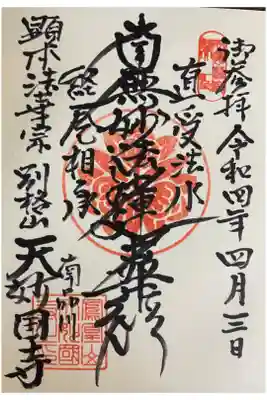 御参拝 令和四年四月三日
直受法水
南無妙法蓮華経
経巻相承
南品川
顕本法華宗 別格山 天妙国寺
鳳凰山